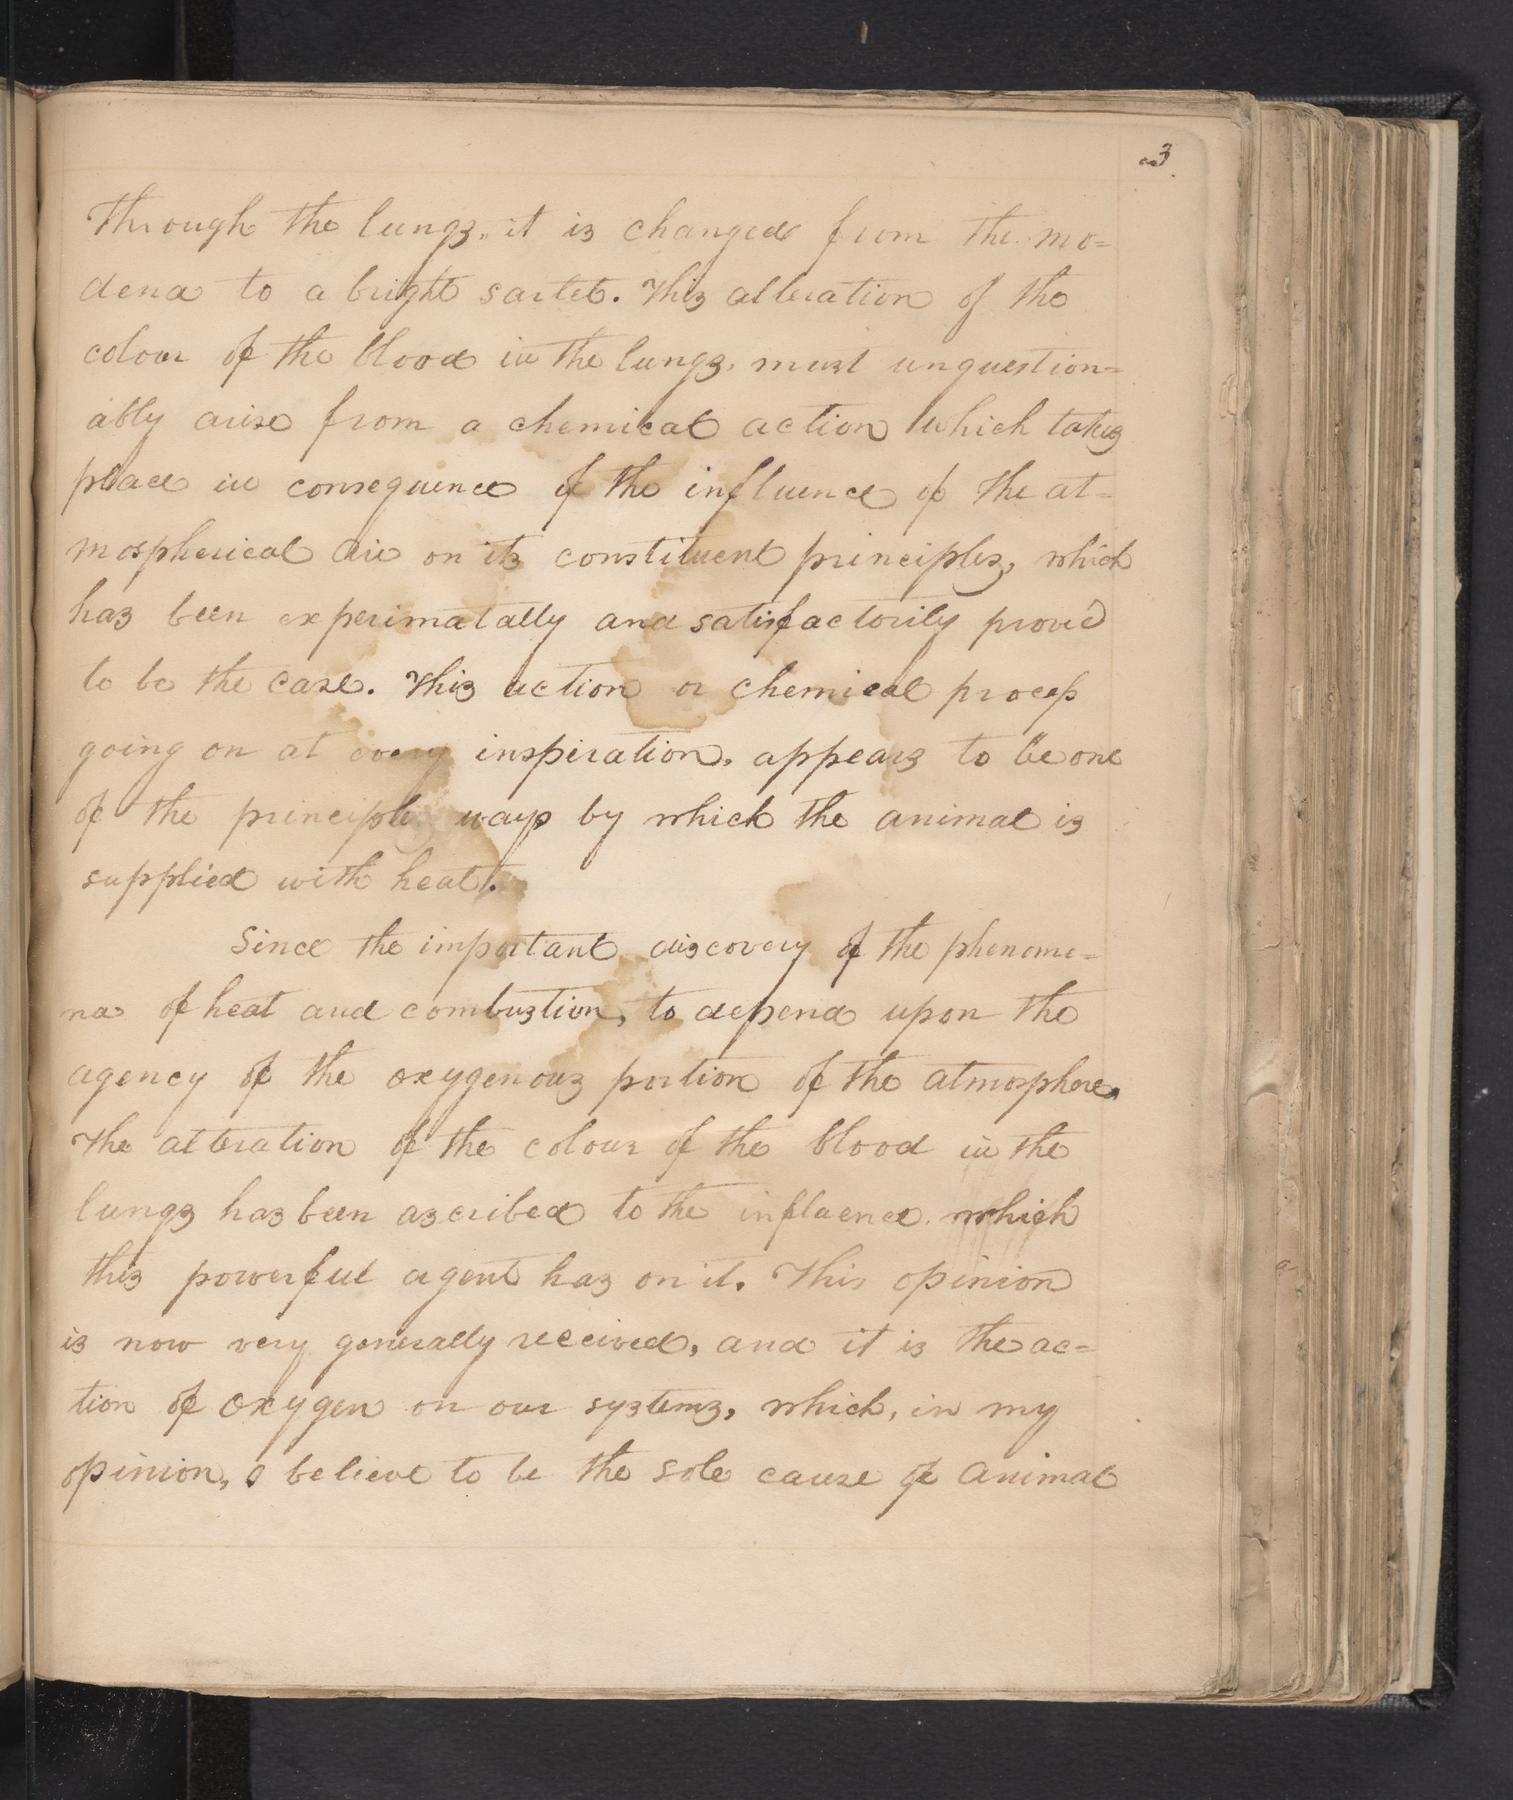 3
through the lungs, it is changed from the mo=
dena to a bright sarlet. This alteration of the
colour of the blood in the lungs, must unquestion=
ably arise from a chemical action which takes
place in consequence of the influence of the at=
mospherical air on its constituent principles, which
has been experimatally and satisfactorily prov'd
to be the case. This action or chemical process
going on at every inspiration, appears to be one
of the principle ways by which the animal is
supplied with heat.
Since the important discovery of the phenome=
na of heat and combustion, to depend upon the
agency of the oxygenous portion of the atmosphere,
The alteration of the colour of the blood in the
lungs has been ascribed to the influence which
this powerful agent has on it. This opinion
is now very generally received, and it is the ac=
tion of oxygen on our systems, which, in my
opinion, I believe to be the sole cause of animal